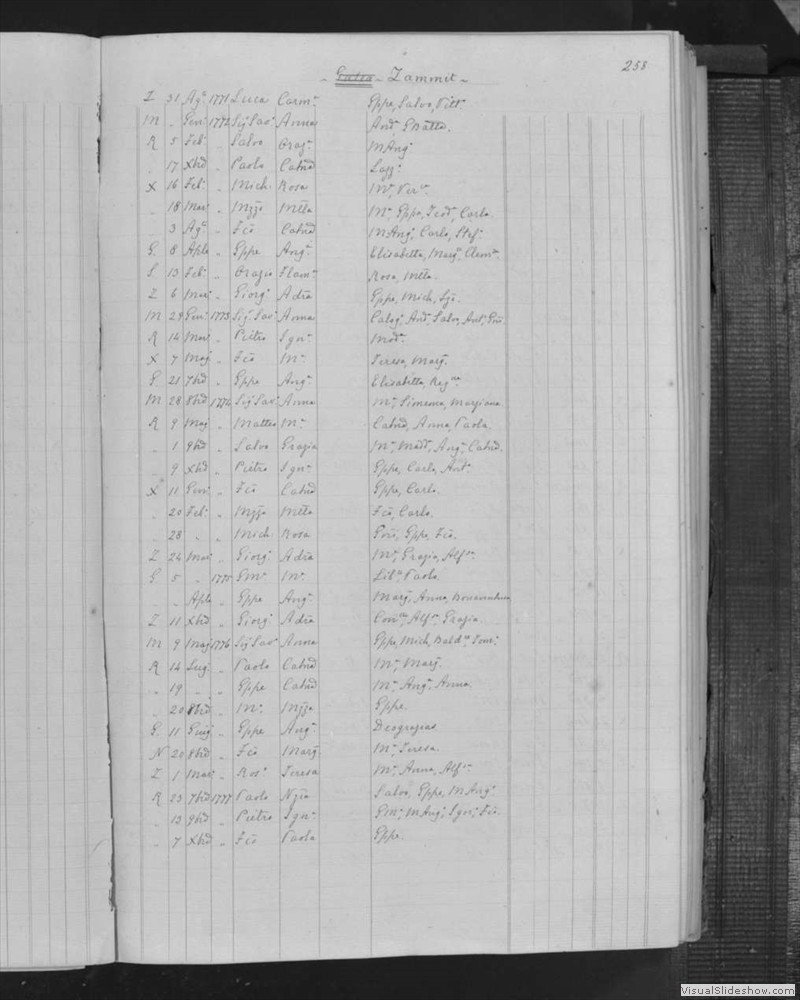 255
Zammit
Z 31 Agº 1771 Luca Carmª Gppe, Salvo, Vittª
M " Genº 1772 Sigʳ Savº Anna Andª GBatta.
R 5 Febº " Salvo Orazª MAngª
" 17 Xbrd " Paolo Catnd
X 16 Febº " Mich. Rosa Mª, Verª
" 18 Marº " Mzzo Mtta Mª, Gppe, Teod, Carlo
" 3 Agº " Fco Catnd MAngº, Carlo, Stefº
G. 8 Aple " Gppe Angª Elisabetta, Margª
S 13 Febº " Orazio Flamª Rosa, Mtta.
Z 6 Marº " Giorgº Adra Gppe, Mich, Ign.
M 29 Genº 1773 Sigʳ Savº Anna Calogº, Andª, Salvo, Antº, Gio
R 14 Marº " Pietro Ignª Modº
X 7 Magº " Fco Mª Teresa, Margª
G 21 7brd " Gppe Angª Elisabetta, Regª
M 28 8brd 1774 Sigʳ Savº Anna Mª, Simeona, Marziana
R 9 Magº " Matteo Mª Catnd, Anna, Paola.
" 1 9brd " Salvo Grazia Mª, Madª, Angª, Catnd.
" 9 Xbrd " Pietro Ignª Gppe, Carlo, Antº
X 11 Genº " Fco Catnd Gppe, Carlo.
" 20 Febº " Mzzo Mtta Fco, Carlo.
" 28 " " Mich. Rosa Gio, Gppe, Fco.
Z 24 Marº " Giorgº Adra Mª, Grazia, Alfª
G 5 " 1775 Emª Mª Libª, Paola.
" " Aple " Gppe Angª Margª, Anna, Bonaventura
Z 11 Xbrd " Giorgº Adra Conª, Alfª, Grazia.
M 9 Magº 1776 Sigʳ Savº Anna Gppe, Mich, Baldª, Domº
R 14 Lugº " Paolo Catnd Mª, Margª
" 19 " " Gppe Catnd Mª, Angª, Anna.
" 20 8brd " Mª Mzza Gppe.
G. 11 Giugº " Gppe Angª Deograzias.
N 20 8brd " Fco Margª Mª, Teresa.
Z 1 Marº " Rosº Teresa Mª, Anna, Alfª
R 23 7brd 1777 Paolo Nzia Salvo, Gppe, MAngº
" 13 9brd " Pietro Ignª Emª, MAngº, Ignº, Fco.
" 7 Xbrd " Fco Paola Gppe.
VisualSlideshow.com